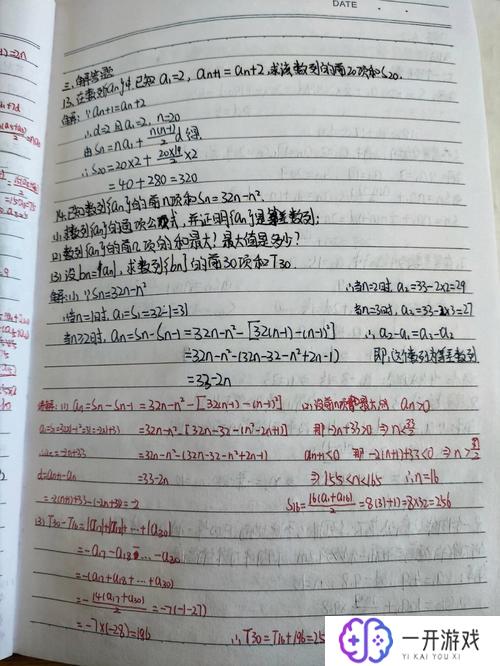 DATE
三、解答题
13. 在数列{an}中,已知a₁=2, an+1=an+2,求该数列的前20项和S20.
解:∵an+1=an+2
∴d=2且a₁=2, n=20
由Sn=na₁+n(n-1)/2 d 得
∴S20=20×2+20×19/2×2
=40+280=320
14. 已知数列{an}的前n项和Sn=32n-n².
(1) 求数列{an}的通项公式,并证明{an}是等差数列;
(2) 数列{an}的前几项的和最大?最大值是多少?
(3) 设bn=|an|,求数列{bn}的前30项和T30.
解:(1) ∵Sn=32n-n²
∴当n=1时, a₁=S₁=32-1=31
当n≥2时, an=Sn-Sn-1=32n-n²-[32(n-1)-(n-1)²]
=32n-n²-(32n-32-n²+2n-1)
=33-2n
∴当n=2时, a₂=33-2×2=29
当n=3时, a₃=33-2×3=27
∴a₂-a₁=a₃-a₂
即,这个数列为等差数列
解:(1) an=Sn-Sn-1=32n-n²-[32(n-1)-(n-1)²]
=32n-n²-[32n-32-(n²-2n+1)]
=32n-n²-(32n-32-n²+2n-1)
=33-2n
d=an+1-an
=-2(n+1)+33-(-2n+33)=-2
an>0
那-2n+33>0⇒n<33/2
an+1<0 那-2(n+1)+33<0⇒n>31/2
⇒15.5<n<16.5 ∴n=16
S16=16(a₁+a16)/2=8(31+1)=8×32=256
(3) T30-T16=|a17|+|a18|+…+|a30|
=-a17-a18-…-a30
=-(a17+a18+…+a30)
=-14(a17+a30)/2=-7(-1-27)
=-7×(-28)=196
∴T30=T16+196=25
一开游戏
YI KAI YOU XI